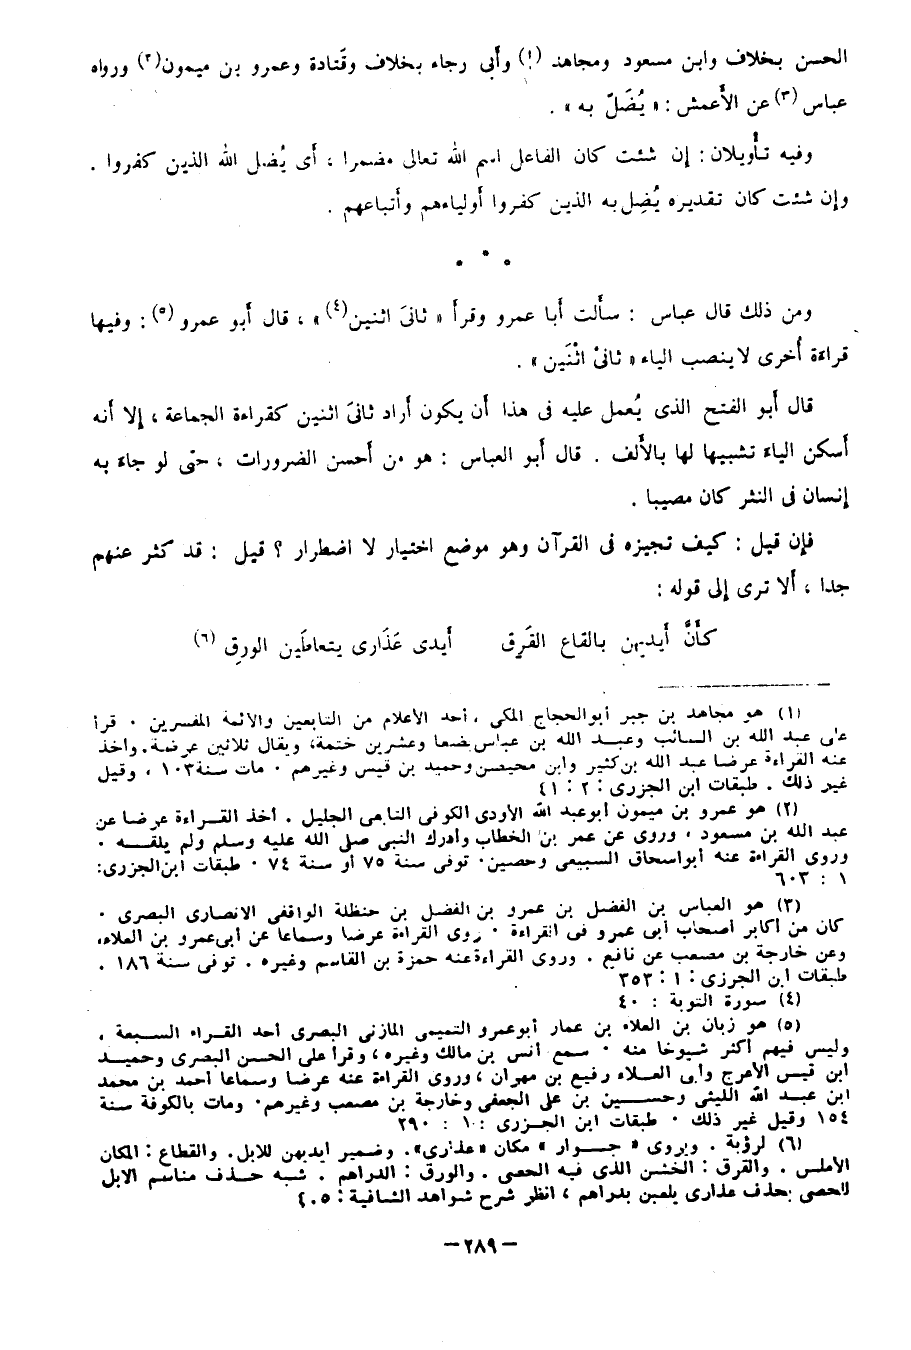 الحسن بخلاف وابن مسعود ومجاهد (١) وأبى رجاء بخلاف وقَتادة وعمرو بن ميمون(٢) ورواه
عباس (٣) عن الأَعمش : « يُضَلّ به » .
وفيه تأْويلان : إِن شئت كان الفاعل اسم الله تعالى مضمرا ، أَى يُضل الله الذين كفروا .
وإِن شئت كان تقديره يُضِل به الذين كفروا أَولياءهم وأَتباعهم .
• • •
ومن ذلك قال عباس : سأَلت أَبا عمرو وقرأَ « ثانىَ اثنين(٤) » ، قال أَبو عمرو (٥) : وفيها
قراءَة أُخرى لا ينصب الياء « ثانىْ اثْنَين » .
قال أَبو الفتح الذى يُعمل عليه فى هذا أَن يكون أَراد ثانىَ اثنين كقراءة الجماعة ، إِلا أَنه
أَسكن الياءَ تشبيها لها بالأَلف . قال أَبو العباس : هو من أَحسن الضرورات ، حتى لو جاءَ به
إِنسان فى النثر كان مصيبا .
فإِن قيل : كيف تجيزه فى القرآن وهو موضع اختيار لا اضطرار ؟ قيل : قد كثر عنهم
جدا ، أَلا ترى إِلى قوله :
كأَنَّ أَيديهن بالقاع القَرِق أَيدى عَذَارى يتعاطَين الورِق (٦)
(١) هو مجاهد بن جبر أبو الحجاج المكى ، أحد الأعلام من التابعين والائمة المفسرين . قرأ
على عبد الله بن السائب وعبد الله بن عباس بضعا وعشرين ختمة، ويقال ثلاثين عرضة. وأخذ
عنه القراءة عرضا عبد الله بن كثير وابن محيصن وحميد بن قيس وغيرهم . مات سنة ١٠٣ ، وقيل
غير ذلك . طبقات ابن الجزرى : ٢ : ٤١
(٢) هو عمرو بن ميمون أبو عبد الله الأودى الكوفى التابعى الجليل . أخذ القراءة عرضا عن
عبد الله بن مسعود ، وروى عن عمر بن الخطاب وأدرك النبى صلى الله عليه وسلم ولم يلقه .
وروى القراءة عنه أبو اسحاق السبيعى وحصين . توفى سنة ٧٥ أو سنة ٧٤ . طبقات ابن الجزرى:
١ : ٦٠٣
(٣) هو العباس بن الفضل بن عمرو بن الفضل بن حنظلة الواقفى الانصارى البصرى .
كان من أكابر أصحاب أبى عمرو فى القراءة . روى القراءة عرضا وسماعا عن أبى عمرو بن العلاء،
وعن خارجة بن مصعب عن نافع . وروى القراءة عنه حمزة بن القاسم وغيره . توفى سنة ١٨٦ .
طبقات ابن الجرزى : ١ : ٣٥٣
(٤) سورة التوبة : ٤٠
(٥) هو زبان بن العلاء بن عمار أبو عمرو التميمى المازنى البصرى أحد القراء السبعة .
وليس فيهم أكثر شيوخا منه . سمع أنس بن مالك وغيره ، وقرأ على الحسن البصرى وحميد
ابن قيس الأعرج وأبى العلاء رفيع بن مهران ، وروى القراءة عنه عرضا وسماعا أحمد بن محمد
ابن عبد الله الليثى وحسين بن على الجعفى وخارجة بن مصعب وغيرهم . ومات بالكوفة سنة
١٥٤ وقيل غير ذلك . طبقات ابن الجزرى : ١ : ٢٩٠
(٦) لرؤبة . ويروى « جوار » مكان «عذارى». وضمير أيديهن للابل. والقطاع : المكان
الأملس . والقرق : الخشن الذى فيه الحصى . والورق : الدراهم . شبه حذف مناسم الابل
للحصى بحذف عذارى يلعبن بدراهم ، انظر شرح شواهد الشافية : ٤٠٥
— ٢٨٩ —